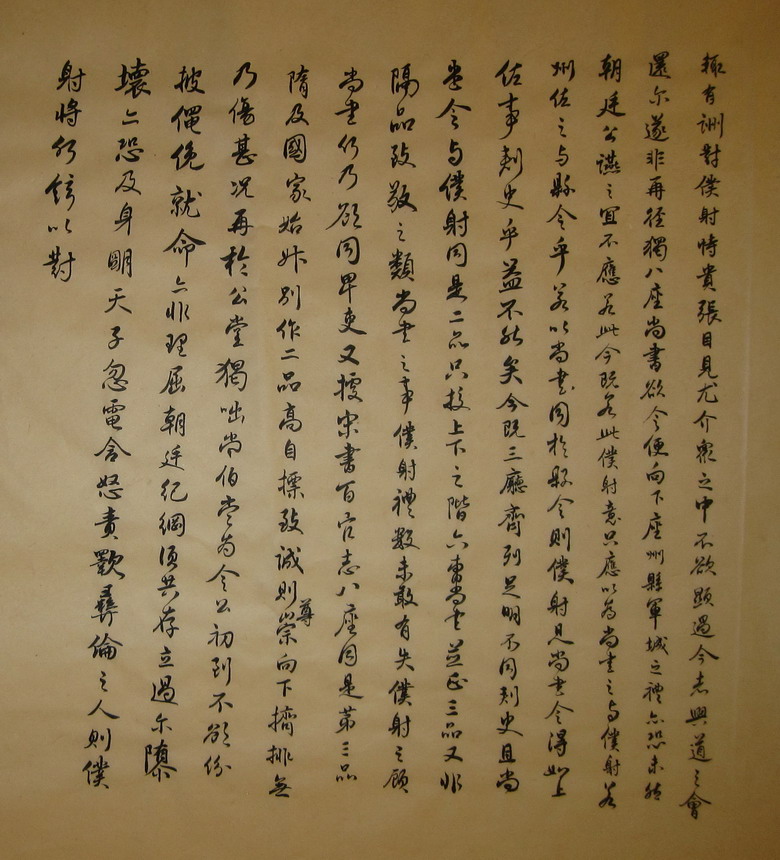 輒有詶對僕射恃貴張目見尤介衆之中不欲顯過今者興道之會
還尔遂非再徑獨八座尚書欲令便向下座州縣軍城之禮亦恐未然
朝廷公讌之宜不應若此今既若此僕射意只應以為尚書之与僕射若
州佐之与縣令乎若以尚書同於縣令則僕射見尚書令得如上
佐事刾史乎益不然矣今既三廳齊列足明不同刾史且尚
書令与僕射同是二品只挍上下之階六曹尚書並正三品又非
隔品致敬之類尚書之事僕射禮數未敢有失僕射之顧
尚書何乃欲同卑吏又據宋書百官志八座同是第三品
隋及國家始升別作二品高自摽致誠則尊崇向下擠排無
乃傷甚況再於公堂獨咄尚伯當為令公初到不欲份
披僶俛就命亦非理屈朝廷紀綱須共存立過尔隳
壞亦恐及身明天子忽電含怒責斁彝倫之人則僕
射將何辞以對